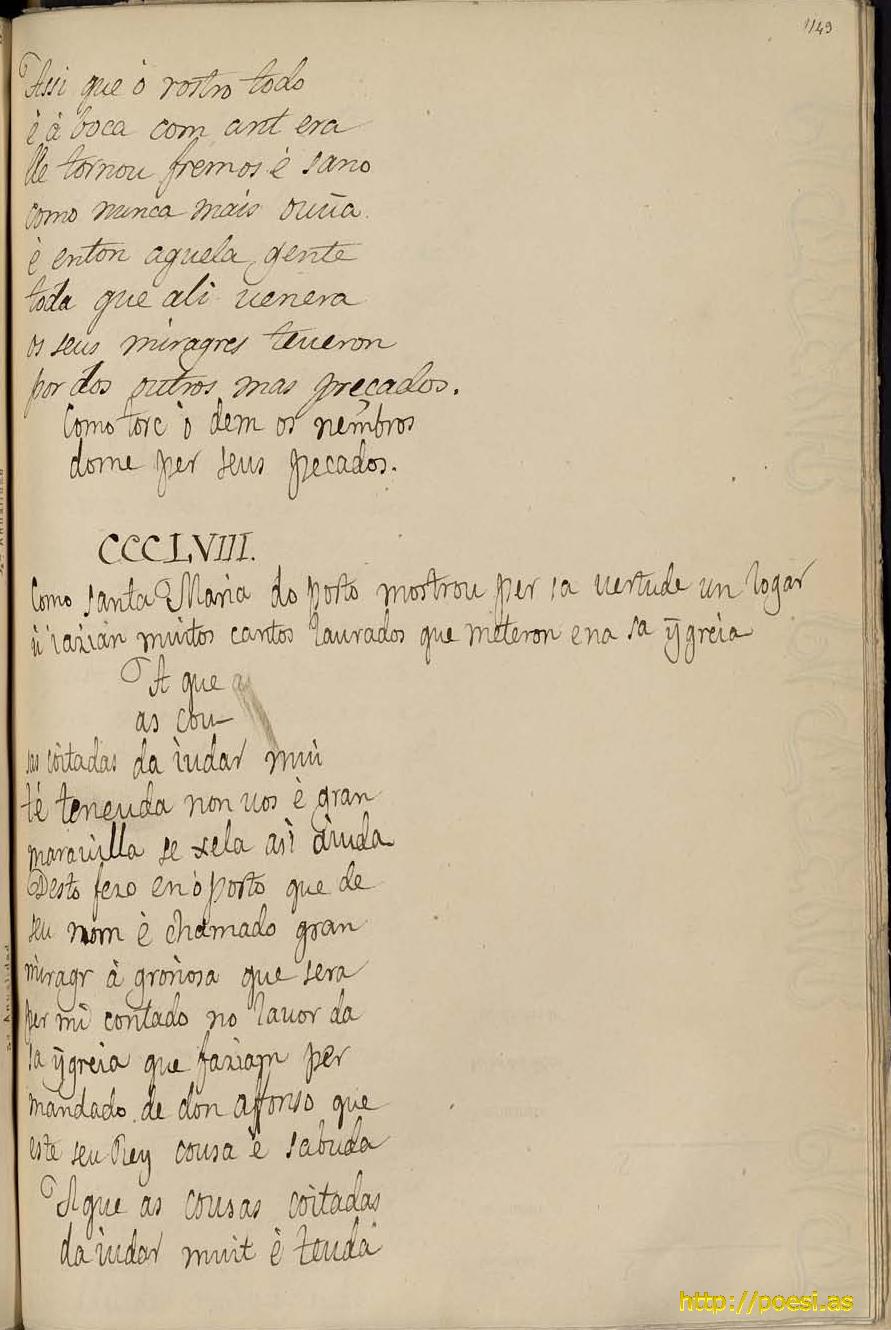 1149
Assi que ò rostro todo
è à boca com ant era
lle tornou fremos è sano
como nunca mais ouũa.
è enton aquela gente
toda que ali uenera
os seus miragres teueron
por dos outros mas preçados.
Como torc ò dem os nembros
dome per seus pecados.
CCCLVIII.
Como santa Maria do porto mostrou per sa uertude un logar
ù iazian muitos cantos laurados que meteron ena sa ỹgreia
A que
as cou-
sas coitadas da iudar mui
té teneuda non uos è gran
marauilla se xela asi aiuda
Desto fezo enò porto que de
seu nom è chamado gran
miragr à groriosa que sera
per mi contado no lauor da
sa ỹgreia que faziam per
mandado de don affonso que
este seu Rey cousa è sabuda
A que as cousas coitadas
da iudar muit è teuda
http://poesi.as